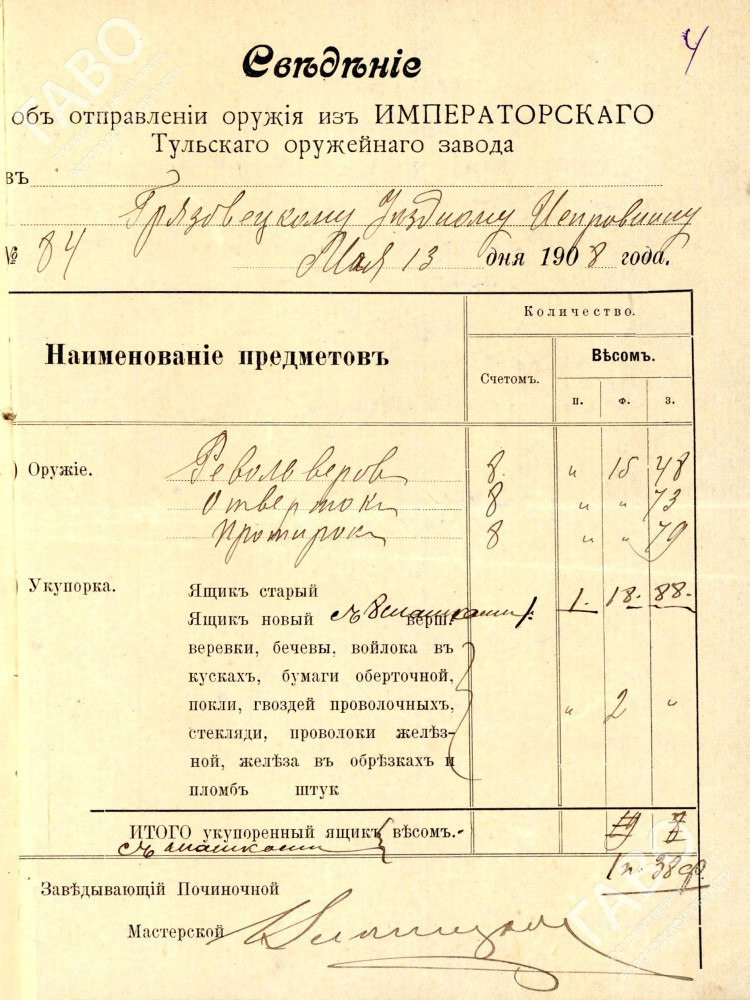 4
Свѣдѣніе
объ отправленіи оружія изъ ИМПЕРАТОРСКАГО
Тульскаго оружейнаго завода
въ
Грязовецкому Уѣздному Исправнику
№ 84 Мая 13 дня 1908 года.
Количество.
Наименованіе предметовъ
Вѣсомъ.
Счетомъ.
п. ф. з.
) Оружіе. Револьверовъ 8. " 15 48
Отвертокъ 8 " " 73
Протирокъ 8 " " 79
) Укупорка. Ящикъ старый
Ящикъ новый съ 8 шашками верш. 1. 1. 18. 88.
веревки, бечевы, войлока въ
кускахъ, бумаги оберточной,
покли, гвоздей проволочныхъ, " 2 "
стекляди, проволоки желѣз-
ной, желѣза въ обрѣзкахъ и
пломбъ штук
ИТОГО укупоренный ящикъ вѣсомъ.
съ шашками
1 п. 38 ф.
Завѣдывающій Починочной
Мастерской
ГАВО
ГАВО